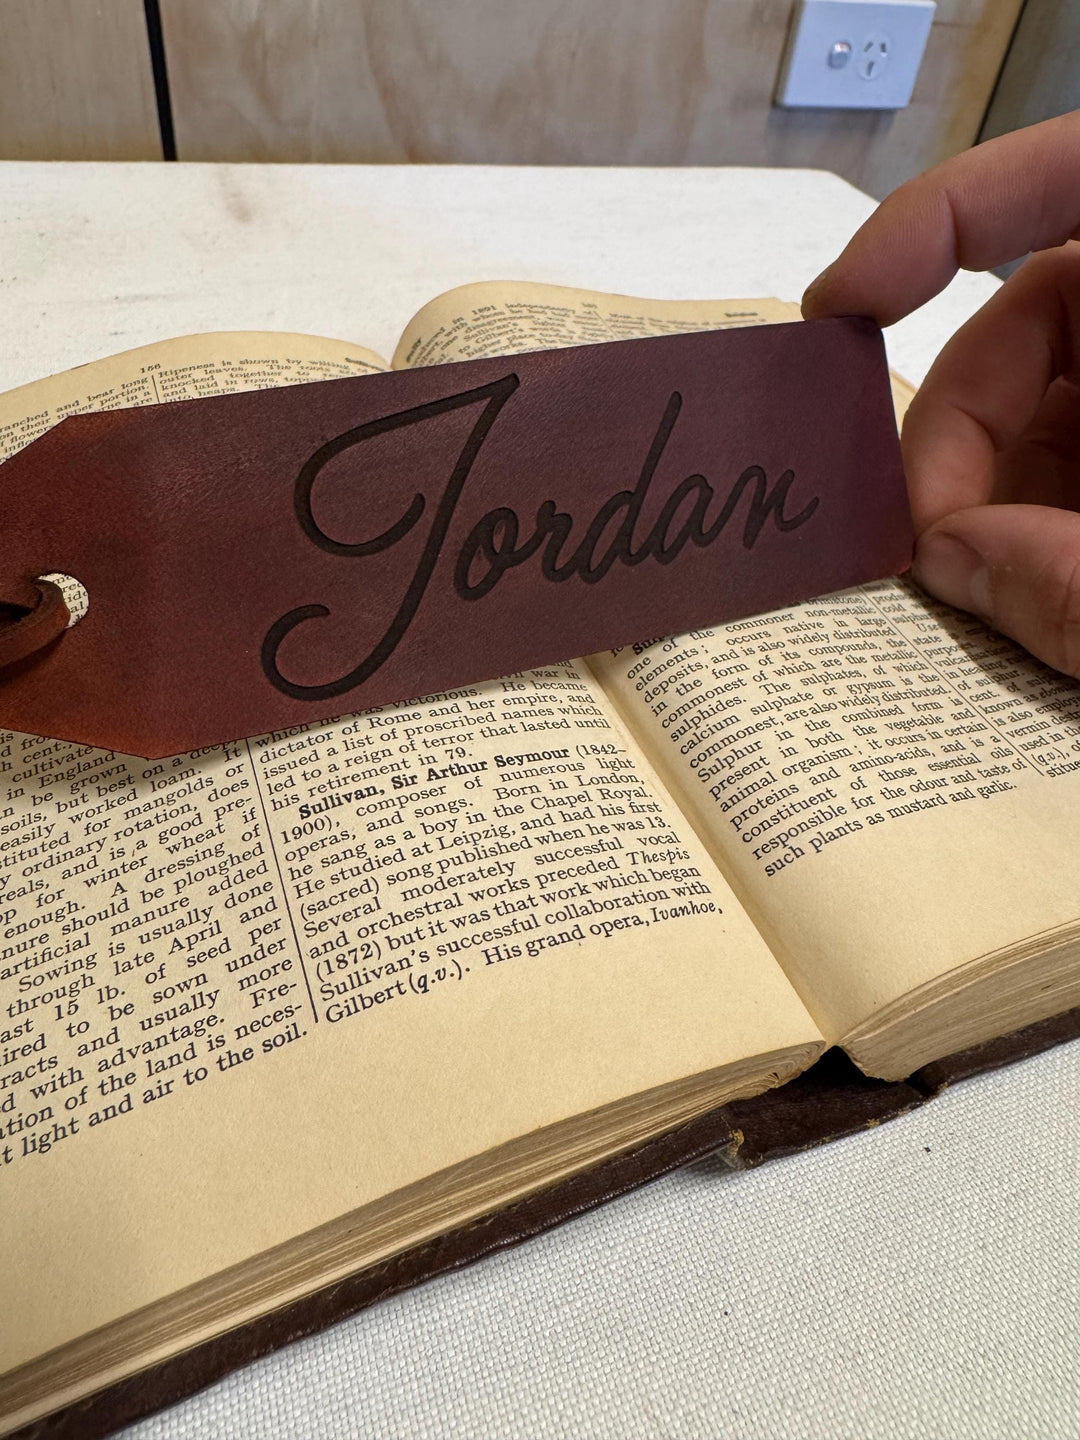 Jordan
156
Ripeness is shown by
outer leaves. The
knocked together to
and laid in rows,
into heaps. The
and bear long
their upper portion.
in a
are
in 1891
cent.,
cultivate
in England
be grown
soils, but best on a deep
easily worked loam. It
for mangolds or
ordinary rotation, does
and is a good pre-
for winter wheat if
enough. A dressing of
should be ploughed
artificial manure added
Sowing is usually done
through late April and
15 lb. of seed per
to be sown under
and usually more
with advantage. Fre-
of the land is neces-
light and air to the soil.
war in
which he was victorious. He became
dictator of Rome and her empire, and
issued a list of proscribed names which
led to a reign of terror that lasted until
his retirement in 79.
Sullivan, Sir Arthur Seymour (1842–
1900), composer of numerous light
operas, and songs. Born in London,
he sang as a boy in the Chapel Royal.
He studied at Leipzig, and had his first
(sacred) song published when he was 13.
Several moderately successful vocal
and orchestral works preceded Thespis
(1872) but it was that work which began
Sullivan's successful collaboration with
Gilbert (q.v.). His grand opera, Ivanhoe,
one of the commoner non-metallic
elements; occurs native in large
deposits, and is also widely distributed
in the form of its compounds, the
commonest of which are the metallic
sulphides. The sulphates, of which
calcium sulphate or gypsum is the
commonest, are also widely distributed.
Sulphur in the combined form is
present in both the vegetable and
animal organism; it occurs in certain
proteins and amino-acids, and is a
constituent of those essential oils
responsible for the odour and taste of
such plants as mustard and garlic.
cold
state
purposes
in heating
of sulphur
cent. of
known as
is also
vermin
used in the
(q.v.), of